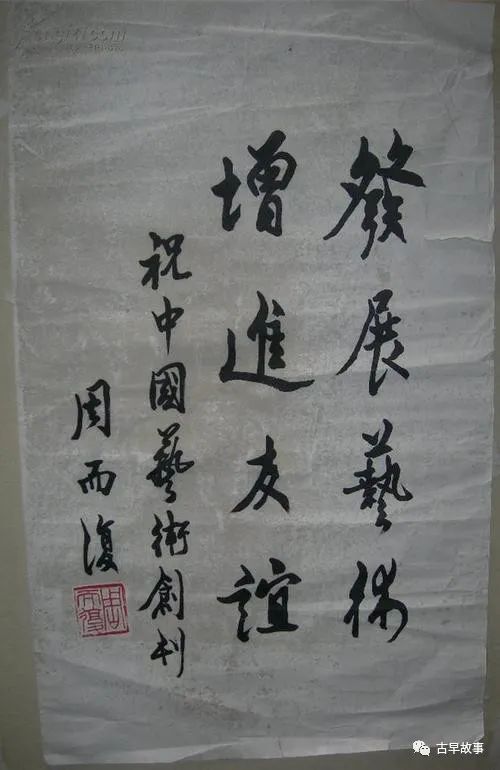 發展藝術
增進友誼
祝中國藝術創刊
周而復
周而復
古早故事